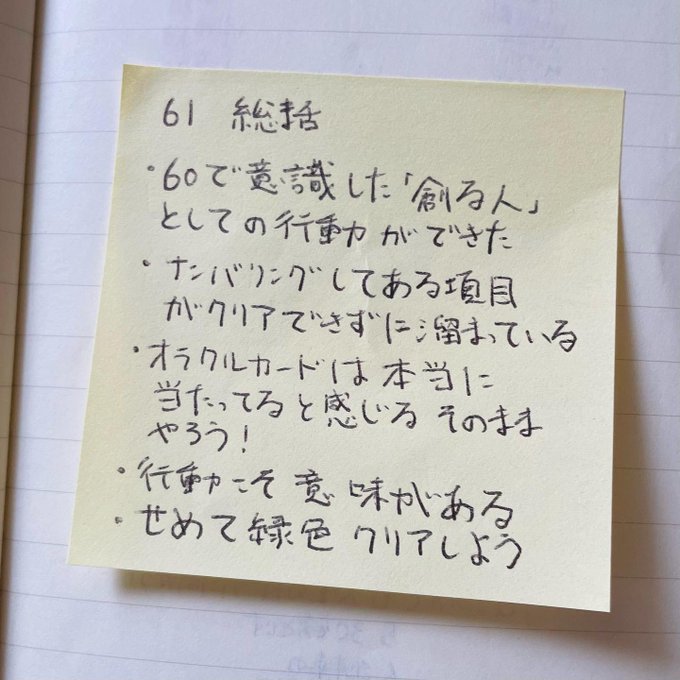 61 総括
・60で意識した「創る人」
としての行動ができた
・ナンバリングしてある項目
がクリアできずに溜まっている
・オラクルカードは本当に
当たってると感じる そのまま
やろう!
・行動こそ意味がある
・せめて緑色クリアしよう